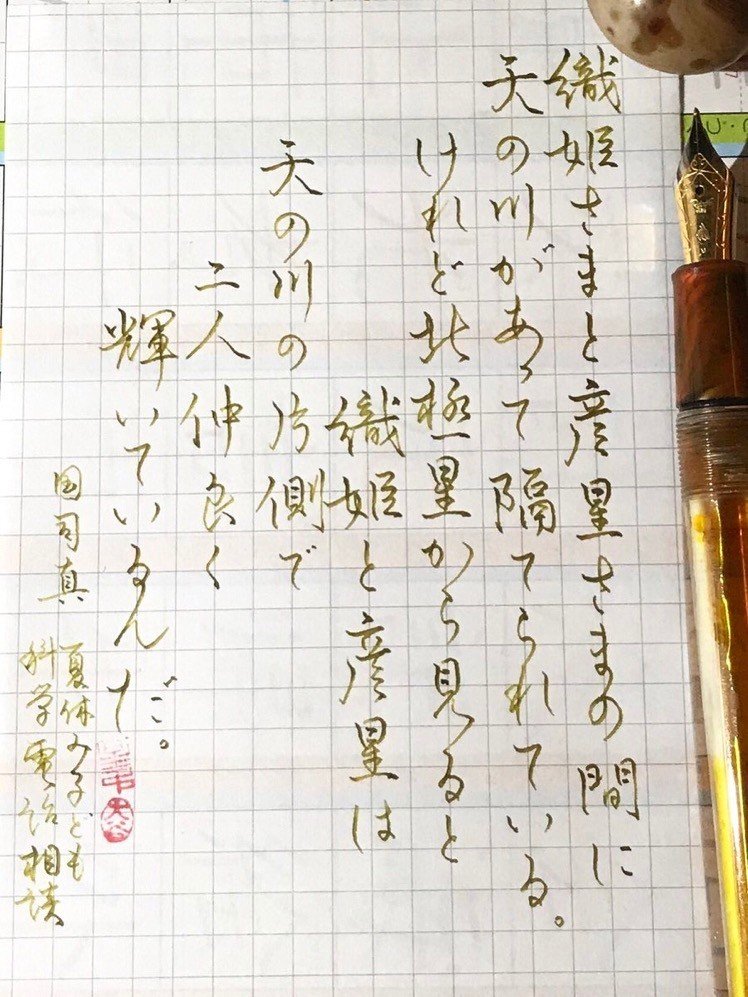 織姫さまと彦星さまの間に
天の川があって隔てられている。
けれど北極星から見ると
織姫と彦星は
天の川の片側で
二人仲良く
輝いているんだ。
国司真
夏休み子ども
科学電話相談